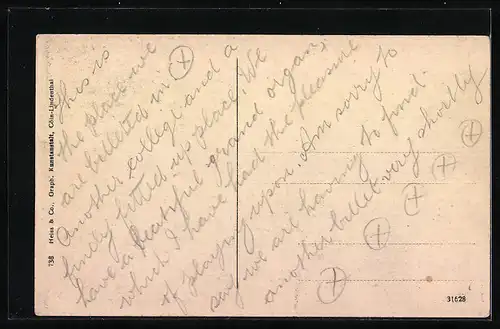 This is
the place we
are billeted in
Another college and a
finely fitted up place. We
have a beautiful grand organ
which I have had the pleasure
of playing upon. Am sorry to
say we are having to find
another billet very shortly
138 Heiss & Co., Graph. Kunstanstalt, Cöln-Lindenthal
31628